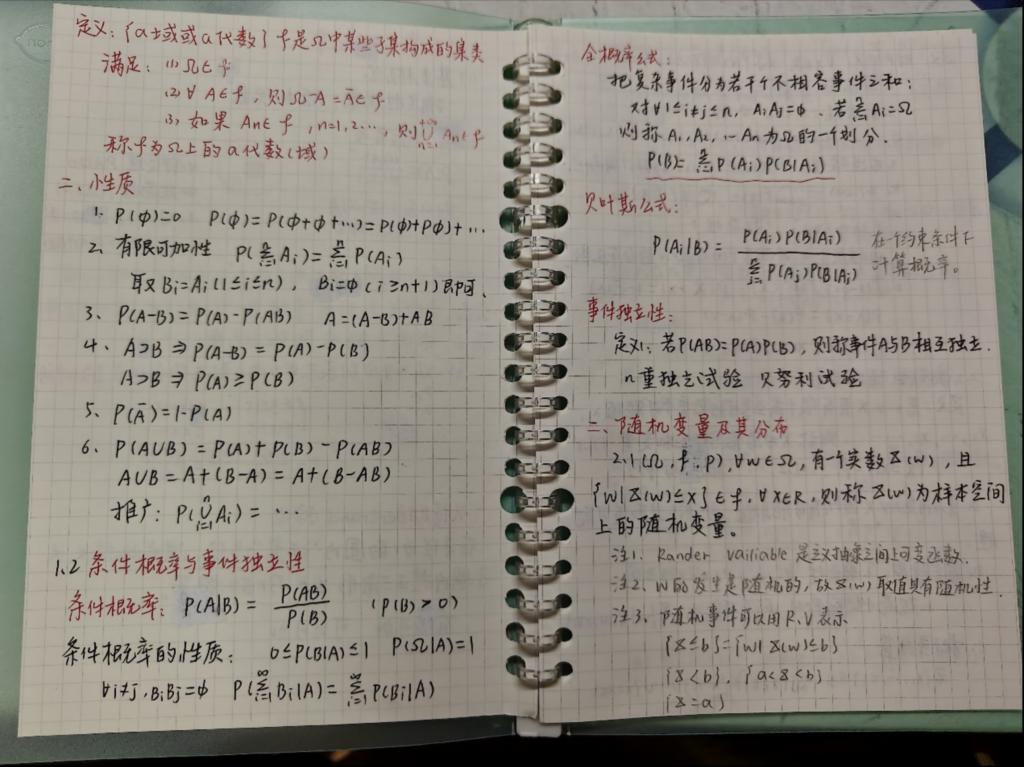 定义:{σ域或σ代数} f是Ω中某些子集构成的集类
满足: (1) Ω∈f
(2) ∀ A∈f, 则Ω-A=Ā∈f
(3) 如果 An∈f, n=1,2…, 则⋃_{n=1}^{+∞} An∈f
称f为Ω上的σ代数(域)
二、性质
1. P(φ)=0 P(φ)=P(φ+φ+…)=P(φ)+P(φ)+…
2. 有限可加性 P(∑_{i=1}^{n} Ai)=∑_{i=1}^{n} P(Ai)
取Bi=Ai(1≤i≤n), Bi=φ(i≥n+1)即可.
3. P(A-B)=P(A)-P(AB) A=(A-B)+AB
4. A⊃B ⇒ P(A-B)=P(A)-P(B)
A⊃B ⇒ P(A)≥P(B)
5. P(Ā)=1-P(A)
6. P(A∪B)=P(A)+P(B)-P(AB)
A∪B=A+(B-A)=A+(B-AB)
推广: P(⋃_{i=1}^{n} Ai)=…
1.2 条件概率与事件独立性
条件概率: P(A|B)=P(AB)/P(B) (P(B)>0)
条件概率的性质: 0≤P(B|A)≤1 P(Ω|A)=1
∀i≠j,BiBj=φ P(∑_{i=1}^{∞} Bi|A)=∑_{i=1}^{∞} P(Bi|A)
全概率公式:
把复杂事件分为若干个不相容事件之和:
对∀1≤i≠j≤n, AiAj=φ. 若∑_{i=1}^{n} Ai=Ω
则称A1,A2,…An为Ω的一个划分.
P(B)=∑_{i=1}^{n} P(Ai)P(B|Ai)
贝叶斯公式:
P(Ai|B)=P(Ai)P(B|Ai)/∑_{j=1}^{n} P(Aj)P(B|Aj) 在一个约束条件下
计算概率。
事件独立性:
定义1: 若P(AB)=P(A)P(B),则称事件A与B相互独立.
n重独立试验 贝努利试验
二、随机变量及其分布
2.1 (Ω,f,p),∀w∈Ω,有一个实数X(w),且
{w|X(w)≤x}∈f,∀x∈R,则称X(w)为样本空间
上的随机变量。
注1、Rander vailiable 是定义抽象空间上可变函数.
注2、w的发生是随机的,故X(w)取值具有随机性.
注3、随机事件可以用R、V表示
{X≤b}={w|X(w)≤b}
{X<b}, {a<X<b}
{X=a}